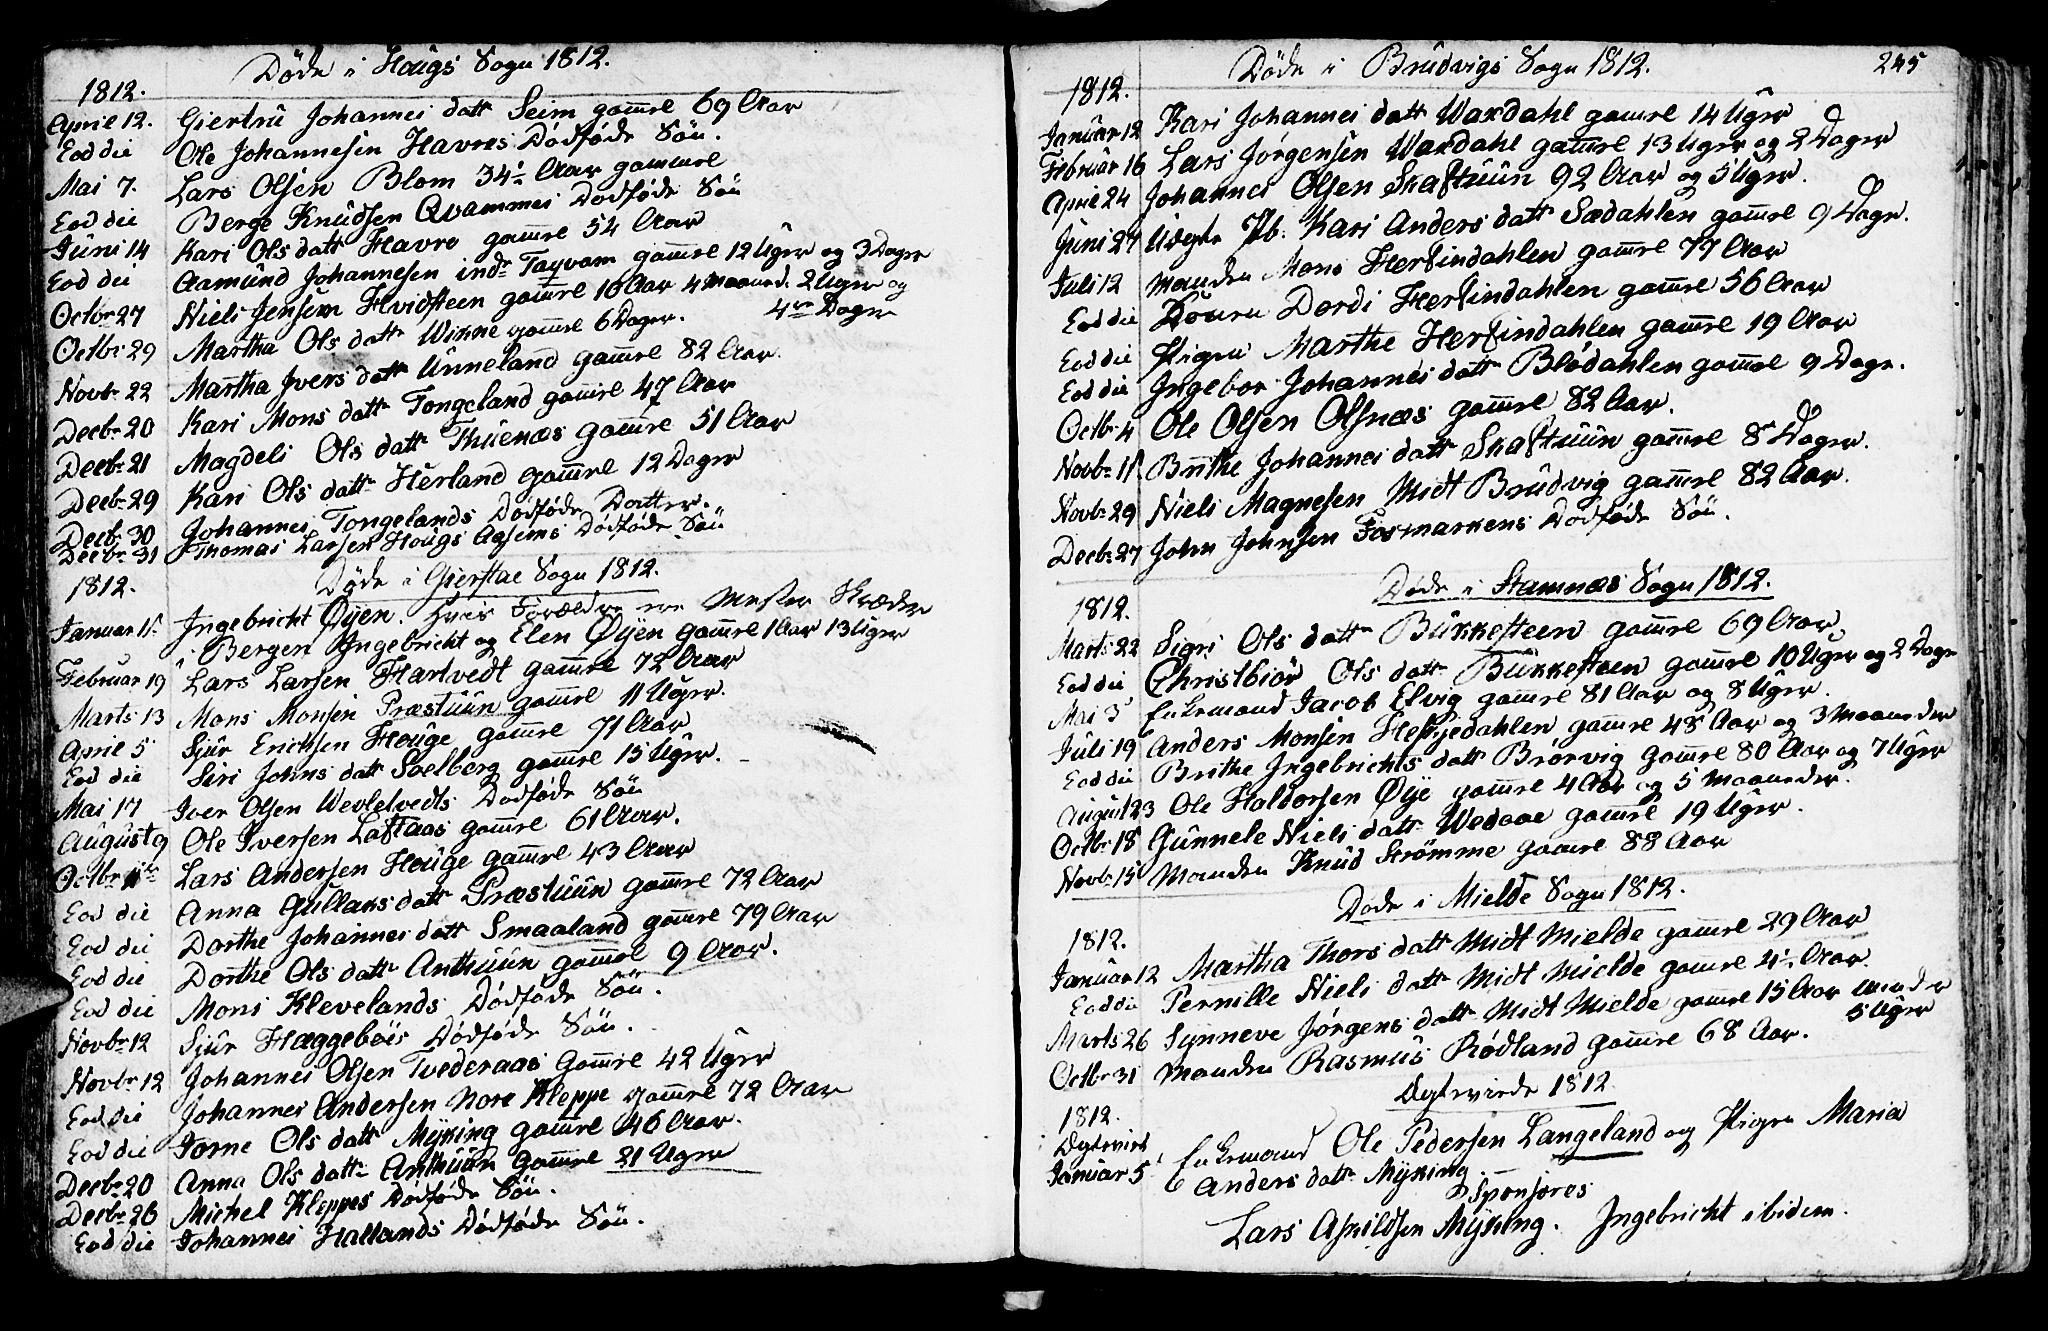 Døde i Haugs Sogn 1812.
1812.
April 12. Giertru Johannes datt Seim gamel 69 Aar
Eod die Ole Johannesen Havres Dødføde Søn.
Mai 7. Lars Olsen Blom 34½ Aar gammel
Eod die Berge Knudsen Qvammes Dødføde Søn
Juni 14 Kari Ols datt Havre gamel 54 Aar
Eod die Aamund Johannesen indr Tayvam gamel 12 Uger og 3 Dager
Octbr 27 Niels Jensen Hvidsteen gamel 16 Aar 4 Maaned. 2 Uger og
4re Dage
Octbr 29 Martha Ols datt Winne gamel 6 Dager.
Novbr 22 Martha Ivers datt Unneland gamel 82 Aar.
Decbr 20 Kari Mons datt Tongeland gamel 47 Aar
Decbr 21 Magdeli Ols datt Thuenæs gamel 51 Aar
Decbr 29 Kari Ols datt Herland gamel 12 Dager
Decbr 30 Johannes Tongelands Dødføde Datter.
Decbr 31 Thomas Larsen Hougs Aasems Dødføde Søn
1812. Døde i Gierstac Sogn 1812.
Januar 1. Ingebricht Øyen. hvis Forældre ere Mester Skræder
i Bergen Ingebricht og Elen Øyen gamel 1 Aar 13 Uger
Februar 19 Lars Larsen Hartvedt gamel 72 Aar
Marts 13 Mons Monsen Præstuun gamel 11 Uger.
April 5 Sjur Erichsen Houge gamel 71 Aar
Eod die Siri Johns datt Soelberg gamel 15 Uger.
Mai 17 Iver Olsen Wevletvedts Dødføde Søn
August 9 Ole Iversen Loftaas gamel 61 Aar.
Octbr 11te Lars Andersen Houge gamel 43 Aar
Eod die Anna Gullaks datt Præstuun gamel 72 Aar
Eod die Dorthe Johannes datt Smaaland gamel 79 Aar
Eod die Dorthe Ols datt Anthuun gamel 9 Aar.
Eod die Mons Klevelands Dødføde Søn.
Novbr 12 Sjur Hæggebøes Dødføde Søn.
Novbr 12 Johannes Olsen Tvederaas gamel 42 Uger
Eod die Johannes Andersen Nore Kleppe gamel 72 Aar
Eod die Jorne Ols datt Myking gamel 46 Aar.
Decbr 20 Anna Ols datt Anthuun gamel 21 Uger
Decbr 26 Michel Kleppes Dødføde Søn.
Eod die Johannes Hallands Dødføde Søn.
Døde i Brudvigs Sogn 1812. 245
1812.
Januar 12 Kari Johannes datt Waxdahl gamel 14 Uger
Februar 16 Lars Jørgensen Waxdahl gamel 13 Uger og 2 Dager
April 24 Johannes Olsen Skaftuun 92 Aar og 5 Uger.
Juni 24 Uægte Pb. Kari Anders datt Sædahlen gamel 9 Dage.
Juli 12 Manden Mons Herfindahlen gamel 77 Aar
Eod die Konen Dordi Herfindahlen gamel 56 Aar
Eod die Pigen Marthe Herfindahlen gamel 19 Aar
Eod die Ingebor Johannes datt Blødahlen gamel 9 Dage.
Octbr 4 Ole Olsen Olsnæs gamel 82 Aar.
Novbr 11 Brithe Johannes datt Skaftuun gamel 8 Dager.
Novbr 29 Niels Magnesen Midt Brudvig gamel 82 Aar.
Decbr 27 John Johnsen Fosmarkens Dødføde Søn.
Døde i Stamnæs Sogn 1812.
1812.
Marts 22 Sigri Ols datt Bukkesteen gamel 69 Aar
Eod die Christbiør Ols datt Bukkesteen gamel 10 Uger og 2 Dage
Mai 3 Enkemand Jacob Elvig gamel 81 Aar og 8 Uger.
Juli 19 Anders Monsen Hesjedahlen gamel 48 Aar og 3 Maaneder
Eod die Brithe Ingebrichts datt Brørvig gamel 80 Aar og 7 Uger
August 23 Ole Haldorsen Øye gamel 4 Aar og 5 Maaneder.
Octbr 18 Gunnele Niels datt Wedaae gamel 19 Uger.
Novbr 15 Manden Knud Strømme gamel 88 Aar
Døde i Mielde Sogn 1812.
1812.
Januar 12 Martha Thors datt Midt Mielde gamel 29 Aar
Eod die Pernille Niels datt Midt Mielde gamel 4½ Aar.
Marts 26 Synneve Jørgens datt Midt Mielde gamel 15 Aar minder
5 Uger
Octbr 31 Manden Rasmus Rødland gamel 68 Aar.
Ægtevirde 1812
1812.
Ægtevirt
Januar 5 Enkemand Ole Pedersen Langeland og Pigen Maria
Anders datt Myking.
Sponsores
Lars Askildsen Myking. Ingebricht ibidem.